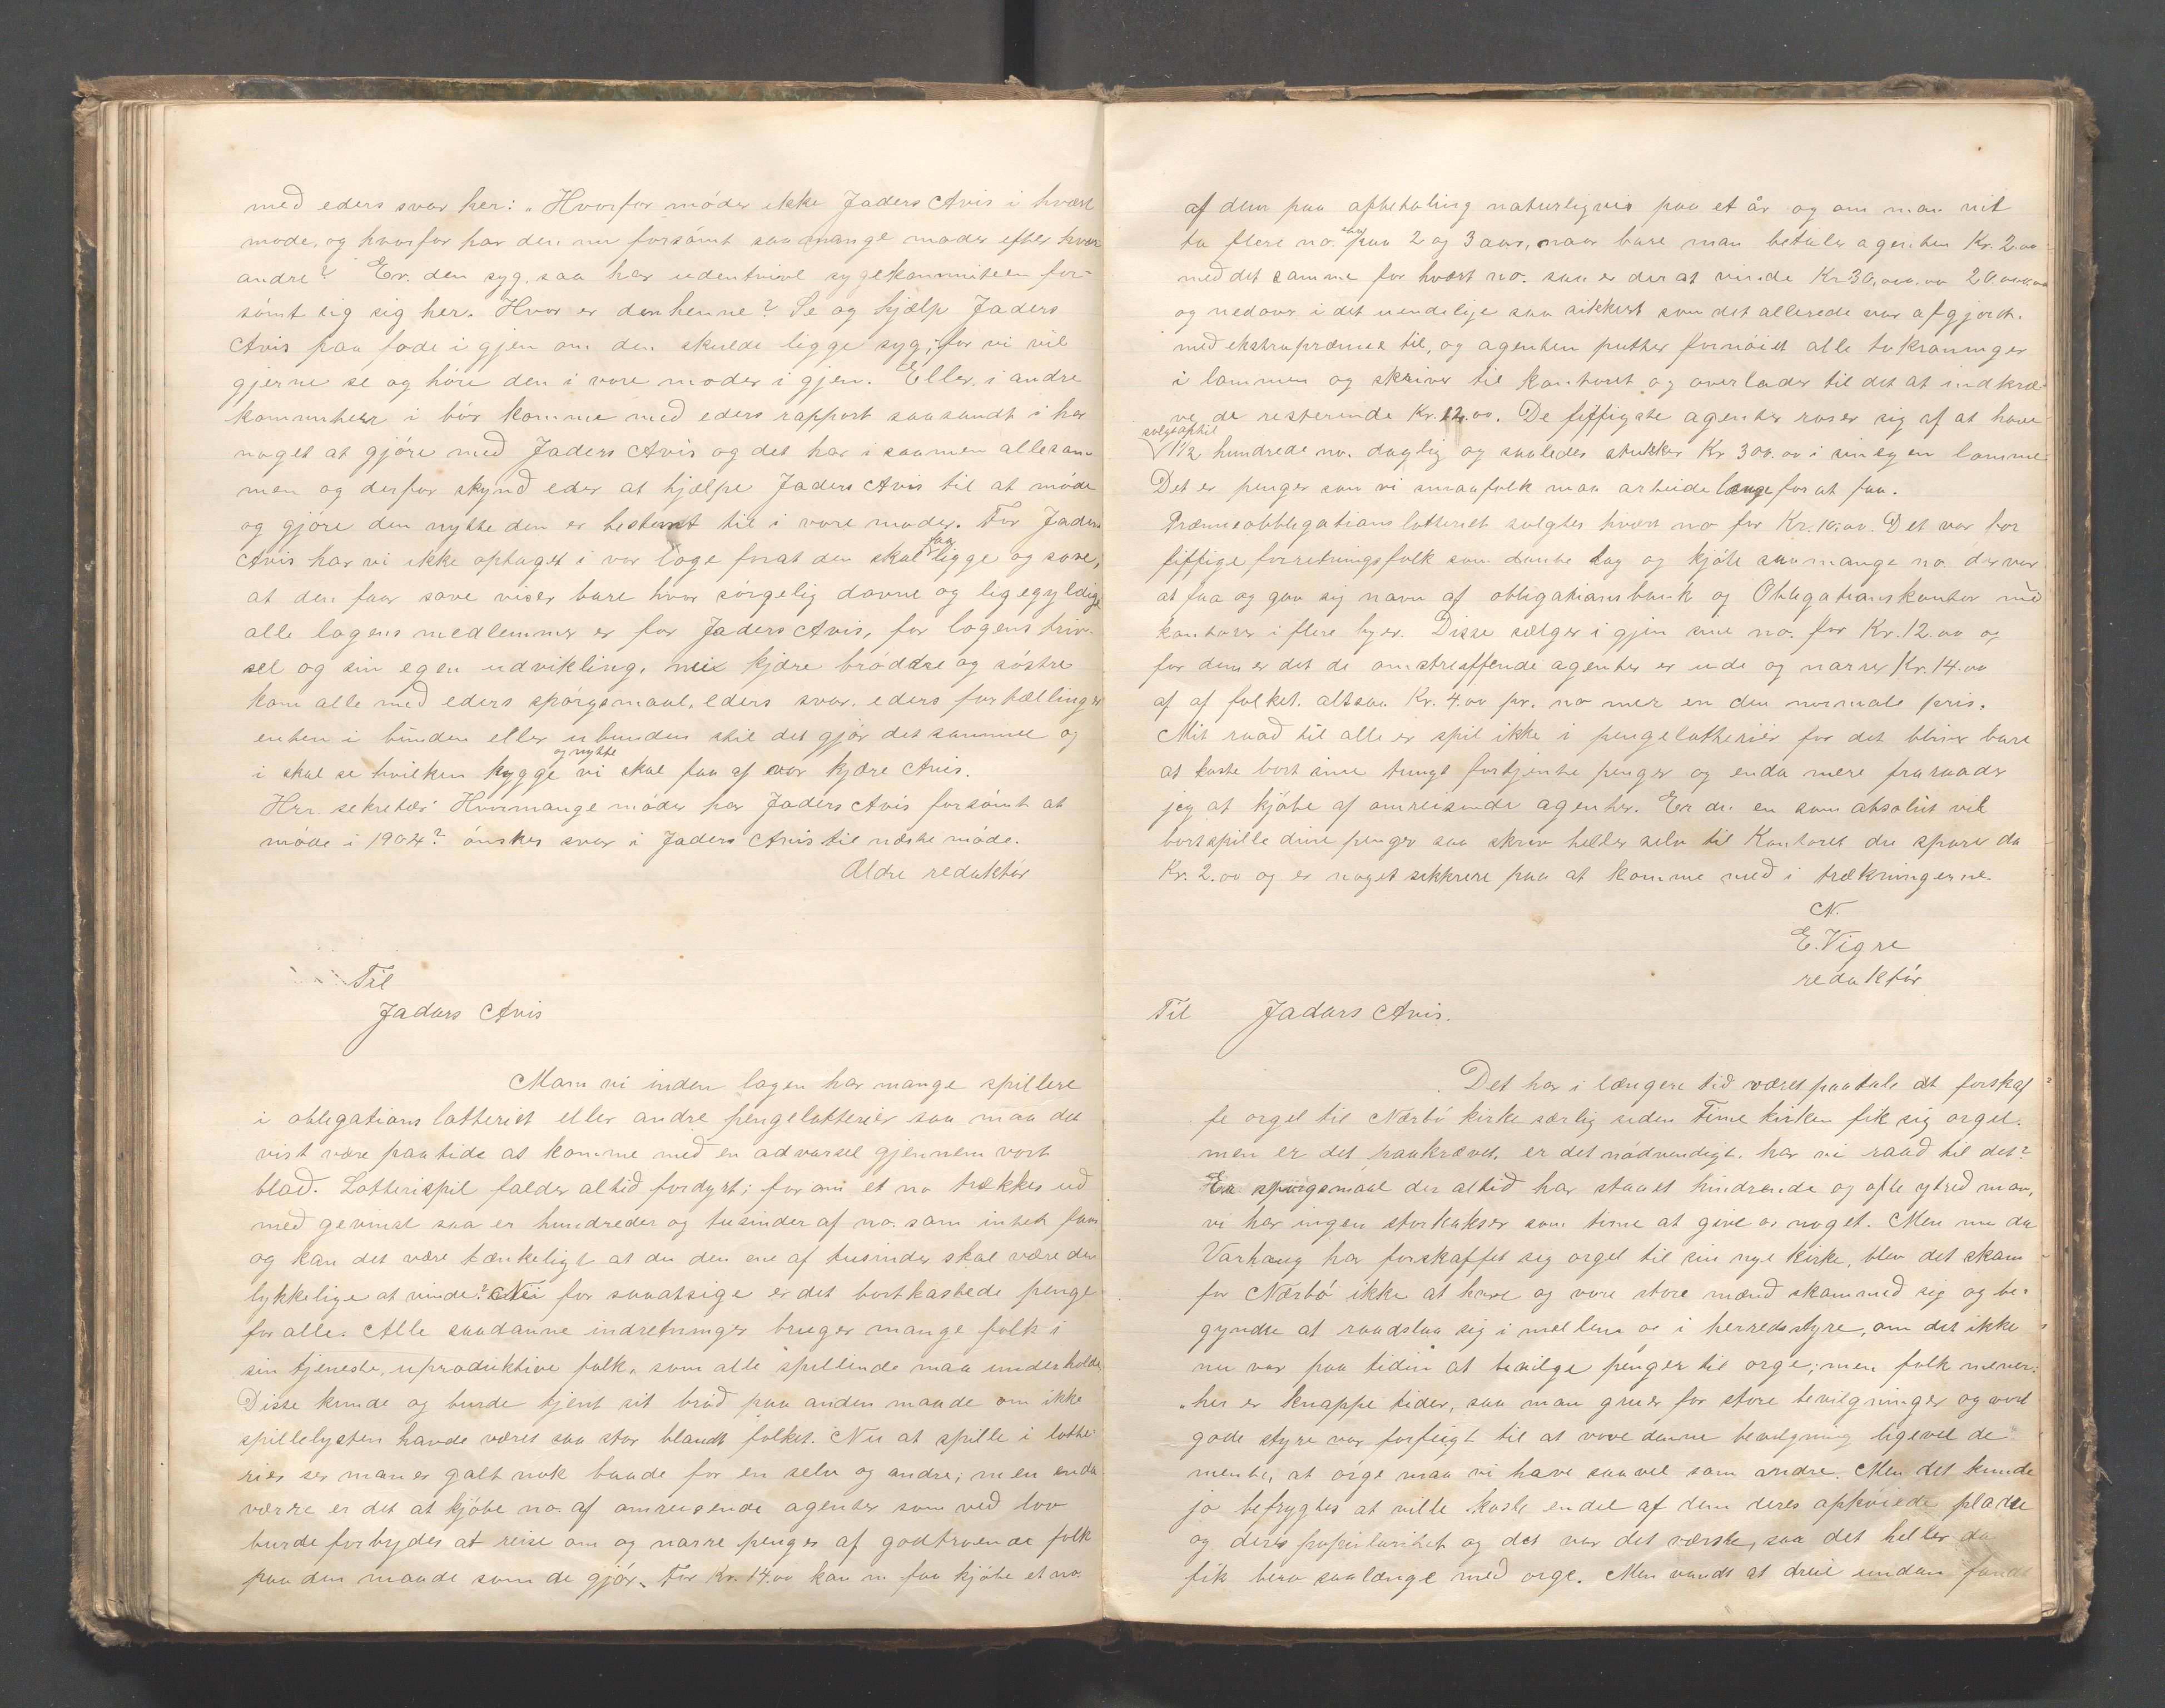 med eders svar her: „Hvorfor møder ikke Jaders Avis i hvært
møde, og hvorfor har den nu forsømt saa mange møder efter hver
andre? Er den syg, saa har udentvivl sygekommiteen for-
sømt sig sig her. Hvor er den henne? Se og hjælp Jaders
Avis paa fode i gjen om den skulde ligge syg; for vi vil
gjerne se og høre den i vore møder i gjen. Eller i andre
kommiteer i bør komme med eders rapport saasandt i har
noget at gjøre med Jaders Avis og det har i saamen allesam-
men og derfor skynd eder at hjælpe Jaders Avis til at møde
og gjøre den nytte den er bestemt til i vore møder. For Jaders
Avis har vi ikke optaget i vor loge forat den skal faa ligge og sove,
at den faar sove viser bare hvor sørgelig dovne og ligegyldige
alle logens medlemmer er for Jaders Avis, for logens triv-
sel og sin egen udvikling. Nei kjære brødre og søstre
kom alle med eders spørgsmaal, eders svar, eders fortællinger
enten i bunden eller ubunden stil det gjør det samme og
i skal se hvilken hygge og nytte vi skal faa af vor kjære Avis.
Hrr. sekretær Hvormange møder har Jaders Avis forsømt at
møde i 1904? ønskes svar i Jaders Avis til næste møde.
Ældre redaktør
Til
Jadars Avis
Mon vi inden logen har mange spillere
i obligations lotteriet eller andre pengelotterier saa maa det
vist være paa tide at komme med en advarsel gjennem vort
blad. Lotterispil falder altid fordyrt; for om et no trækkes ud
med gevinst saa er hundreder og tusinder af no. som intet faar
og kan det være tænkeligt at du den ene af tusinder skal være den
lykkelige at vinde? Nei for saaatsige er det bortkastede penge
for alle. Alle saadanne indretninger bruger mange folk i
sin tjeneste, uproduktive folk, som alle spillende maa underholde
Disse kunde og burde tjent sit brød paa anden maade om ikke
spillelysten havde været saa stor blandt folket. Nu at spille i lotte-
rier ser man er galt nok baade for en selv og andre; men enda
værre er det at kjøbe no. af omreisende agenter som ved lov
burde forbydes at reise om og narre penger af godtroende folk
paa den maade som de gjør. For Kr. 14.00 kan en faa kjøbe et no.
af dem paa afbetaling naturligvis paa et år og om man vil
ta flere no. paa 2 og 3 aar, naar bare man betaler agenten Kr. 2.00
med det samme for hvært no. saa er der at vinde Kr 30,000.00 20,000.00
og nedover i det uendelige saa sikkert som det allerede var afgjordt.
med ekstrapræmie til, og agenten putter fornøiet alle tokroninger
i lommen og skriver til kontoret og overlader til det at indkræ-
ve de resterende Kr. 12.00. De fiffigste agenter roser sig af at have
solgt optil
1 1/2 hundrede no. daglig og saaledes stukker Kr 300.00 i sin egen lomme
Det er penger som vi smaafolk maa arbeide længe for at faa.
Præmieobligationslotteriet solgtes hvært no for Kr. 10.00. Det var for
fiffige forretningsfolk som danke tog og kjøbte saamange no. der var
at faa og gav sig navn af obligationsbank og Obligationskontor med
kontorer i flere byer. Disse sælger i gjen sine no. for Kr. 12.00 og
for dem er det de omstreiffende agenter er ude og narrer Kr. 14.00
af af folket. altsaa Kr. 4.00 pr. no mer en den normale pris.
Mit raad til alle er spil ikke i pengelotterier for det bliver bare
at kaste bort sine tungt fortjente penger og enda mere fraraader
jeg at kjøbe af omreisende agenter. Er du en som absolut vil
bortspille dine penger saa skriv heller selv til Kontoret du sparer da
Kr. 2.00 og er noget sikkrere paa at komme med i trækningerne.
N.
E. Vigre
redaktør
Til Jadars Avis.
Det har i længere tid været paatale at forskaf-
fe orgel til Nærbø kirke særlig siden Time kirken fik sig orgel.
men er det paakrævet, er det nødvendigt, har vi raad til det?
Er spørgsmaal der altid har staaet hindrende og ofte ytred man,
vi har ingen storkakser som time at give os noget. Men nu da
Varhaug har forskaffet sig orgel til sin nye kirke, blev det skam
for Nærbø ikke at have og vore store mænd skammed sig og be-
gyndte at raadslaa sig i mellem os i herredsstyre, om det ikke
nu var paa tiden at bevilge penger til orge; men folk mener:
„her er knappe tider, saa man gruer for store bevilgninger og vort
gode styre var forfeigt til at vove denne bevilgning ligevel de
mente, at orge maa vi have saavel som andre. Men det kunde
jo befrygtes at ville koste endel af dem deres ophøiede pladse
og deres popularitet og det var det værste, saa det heller da
fik bero saalænge med orge. Men vandt at dreie undan fandt